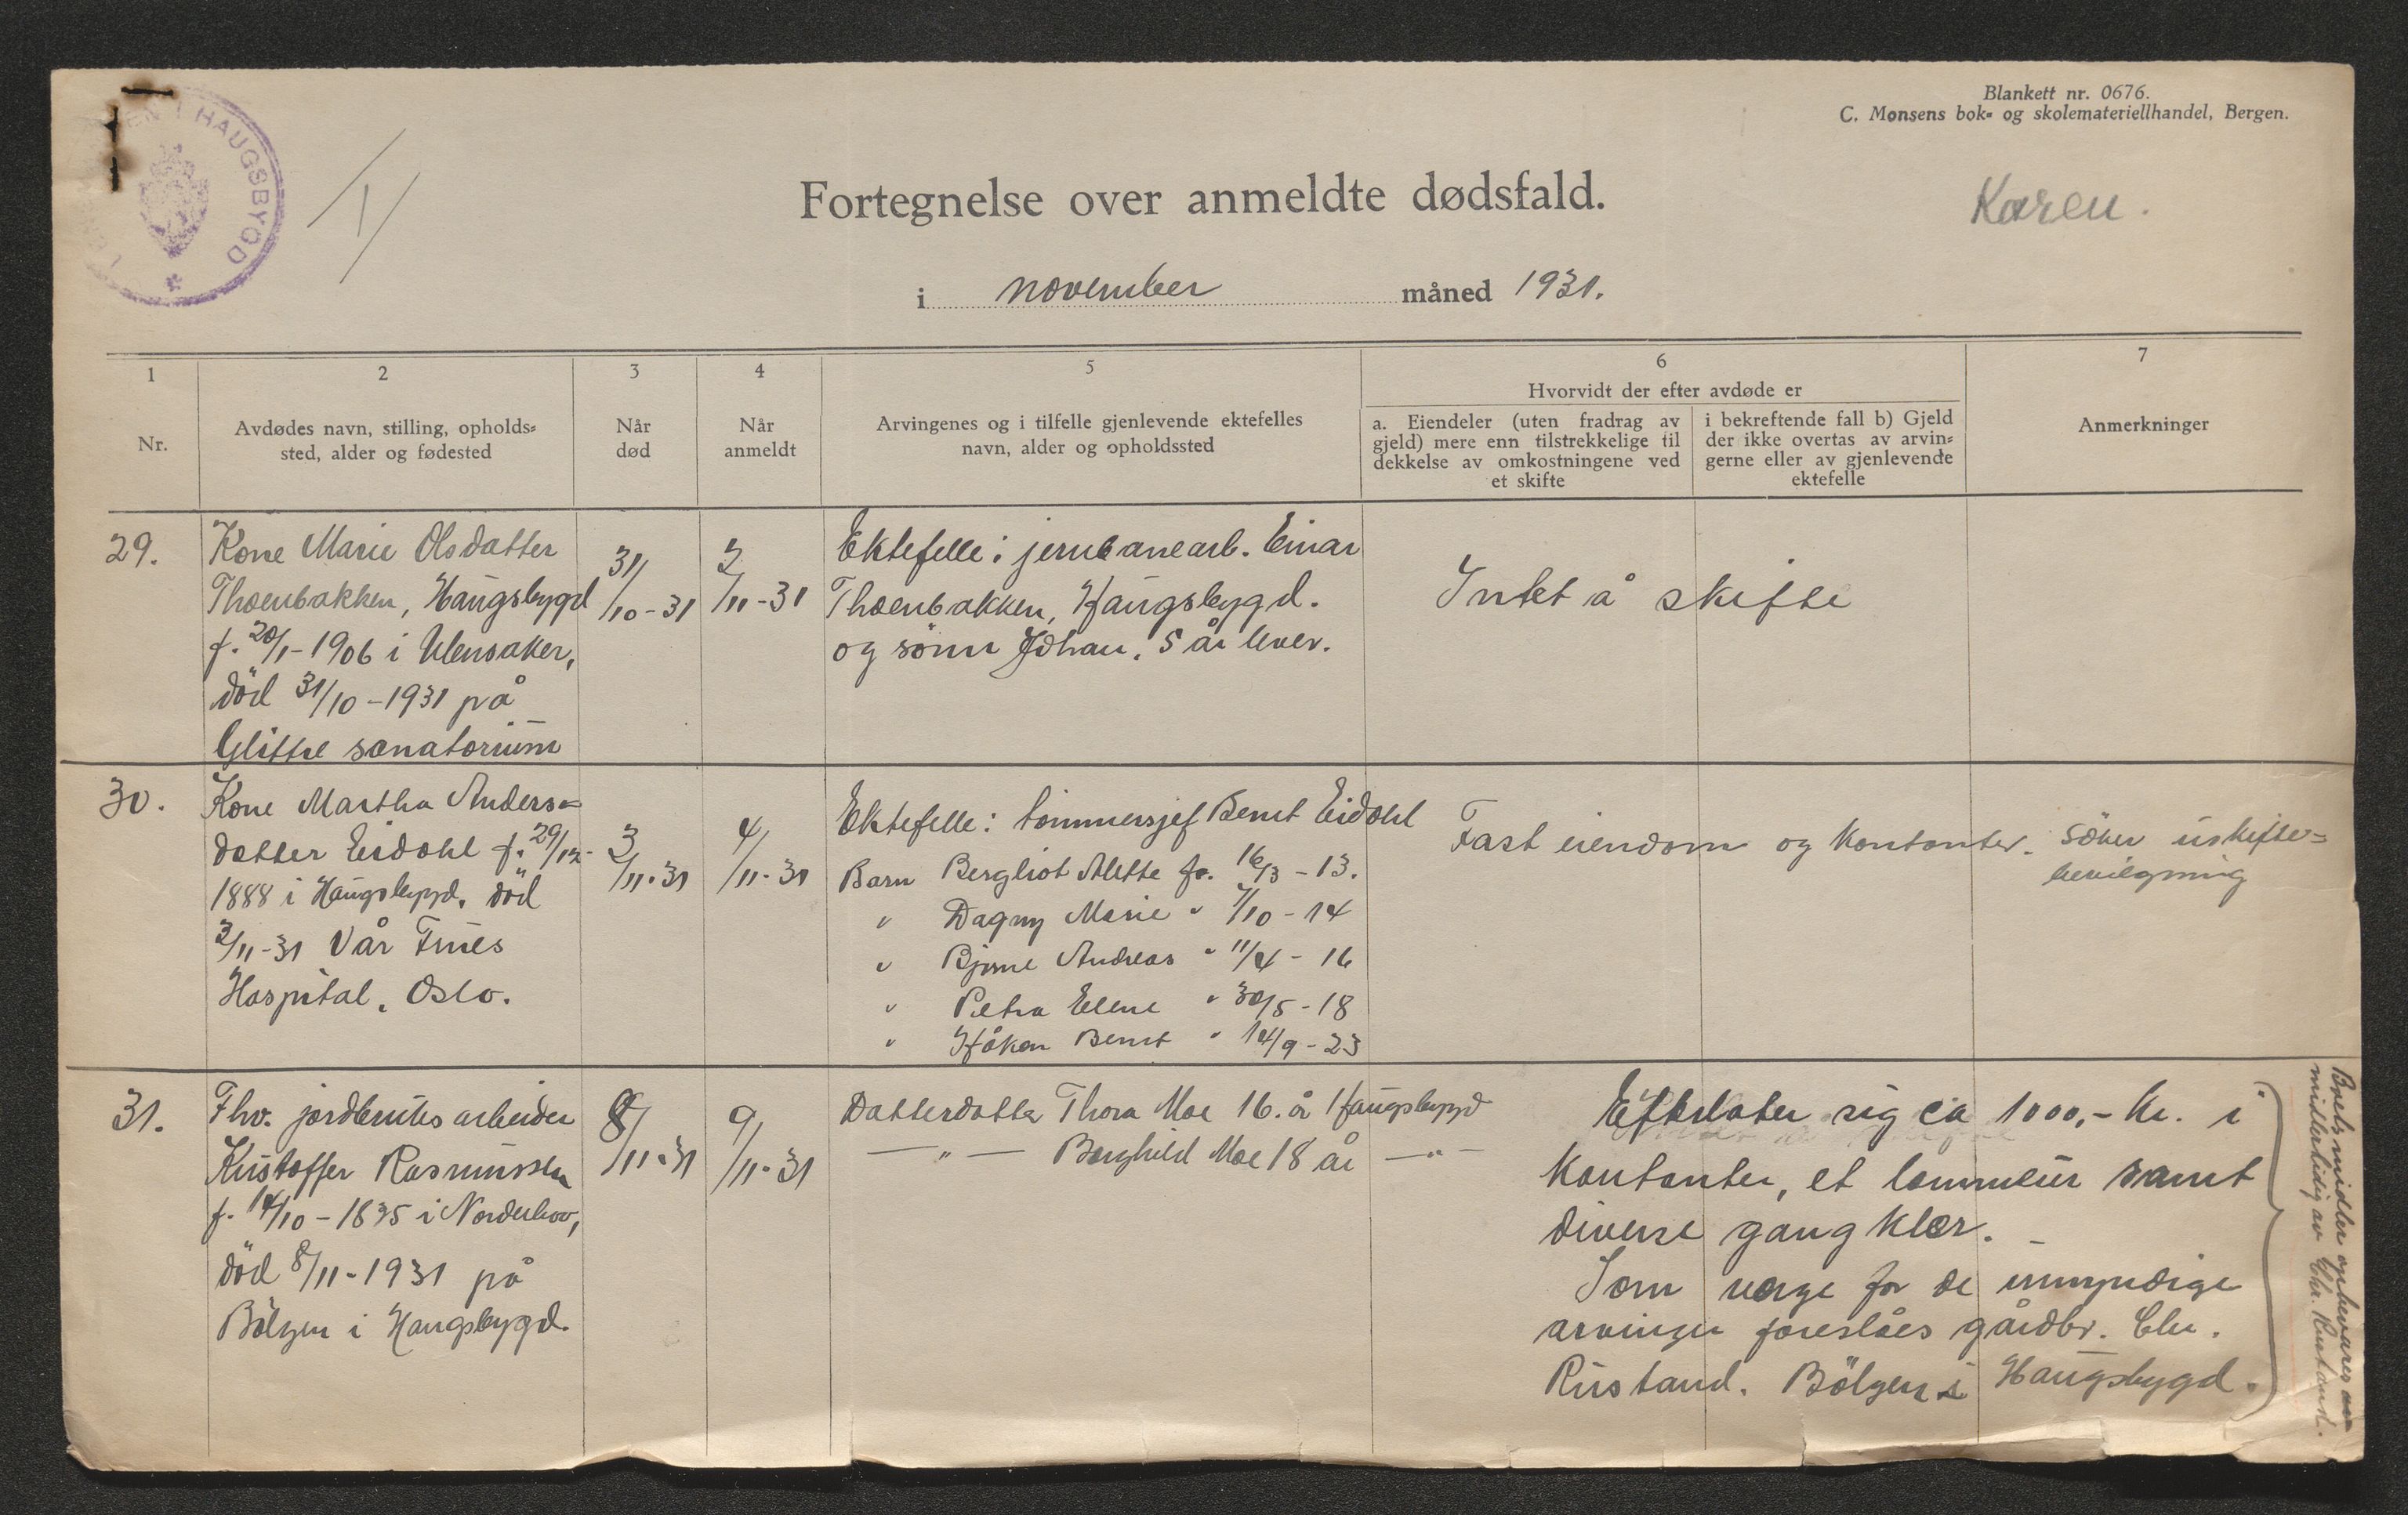 Blankett nr. 0676.
C. Monsens bok- og skolemateriellhandel, Bergen.
I HAUGSBYGD
Fortegnelse over anmeldte dødsfald.
Karen.
i november måned 1931.
1
2
3
4
5
6
7
Hvorvidt der efter avdøde er
Nr.
Avdødes navn, stilling, opholds-
sted, alder og fødested
Når
død
Når
anmeldt
Arvingenes og i tilfelle gjenlevende ektefelles
navn, alder og opholdssted
a. Eiendeler (uten fradrag av
gjeld) mere enn tilstrekkelige til
dekkelse av omkostningene ved
et skifte
i bekreftende fall b) Gjeld
der ikke overtas av arvin-
gerne eller av gjenlevende
ektefelle
Anmerkninger
29.
Kone Marie Olsdatter
Thoenbakken, Haugsbygd
f. 20/1-1906 i Ulensaker,
död 31/10-1931 på
Glittre sanatorium
31/10-31
2/11-31
Ektefelle: jernbanearb. Einar
Thoenbakken, Haugsbygd.
og sönn Johan, 5 år lever.
Intet å skifte
30.
Kone Martha Anders-
datter Eidahl f. 29/12-
1888 i Haugsbygd, död
3/11-31 Vår Frues
Hospital, Oslo.
3/11-31
4/11-31
Ektefelle: tömmersjef Bernt Eidahl
Barn Bergliot Alette f. 16/3-13.
" Dagny Marie " 7/10-14
" Bjarne Andreas " 11/4-16
" Petra Elene " 30/5-18
" Håkon Bernt " 14/9-23
Fast eiendom og kontanter.
Söker uskifte-
bevilgning
31.
Fhv. jordbruksarbeider
Kristoffer Rasmussen
f. 14/10-1835 i Norderhov,
död 8/11-1931 på
Bölgen i Haugsbygd.
8/11-31
9/11-31
Datterdatter Thora Moe 16. år Haugsbygd
— " — Borghild Moe 18 år — " —
Efterlater sig ca 1000,- kr. i
kontanter, et lommeur samt
diverse gangklær. -
Som verge for de umyndige
arvinger foreslåes gårdbr. Chr.
Rustand. Bölgen i Haugsbygd.
Boets midler opbevares
midlertidig av Chr. Rustand.